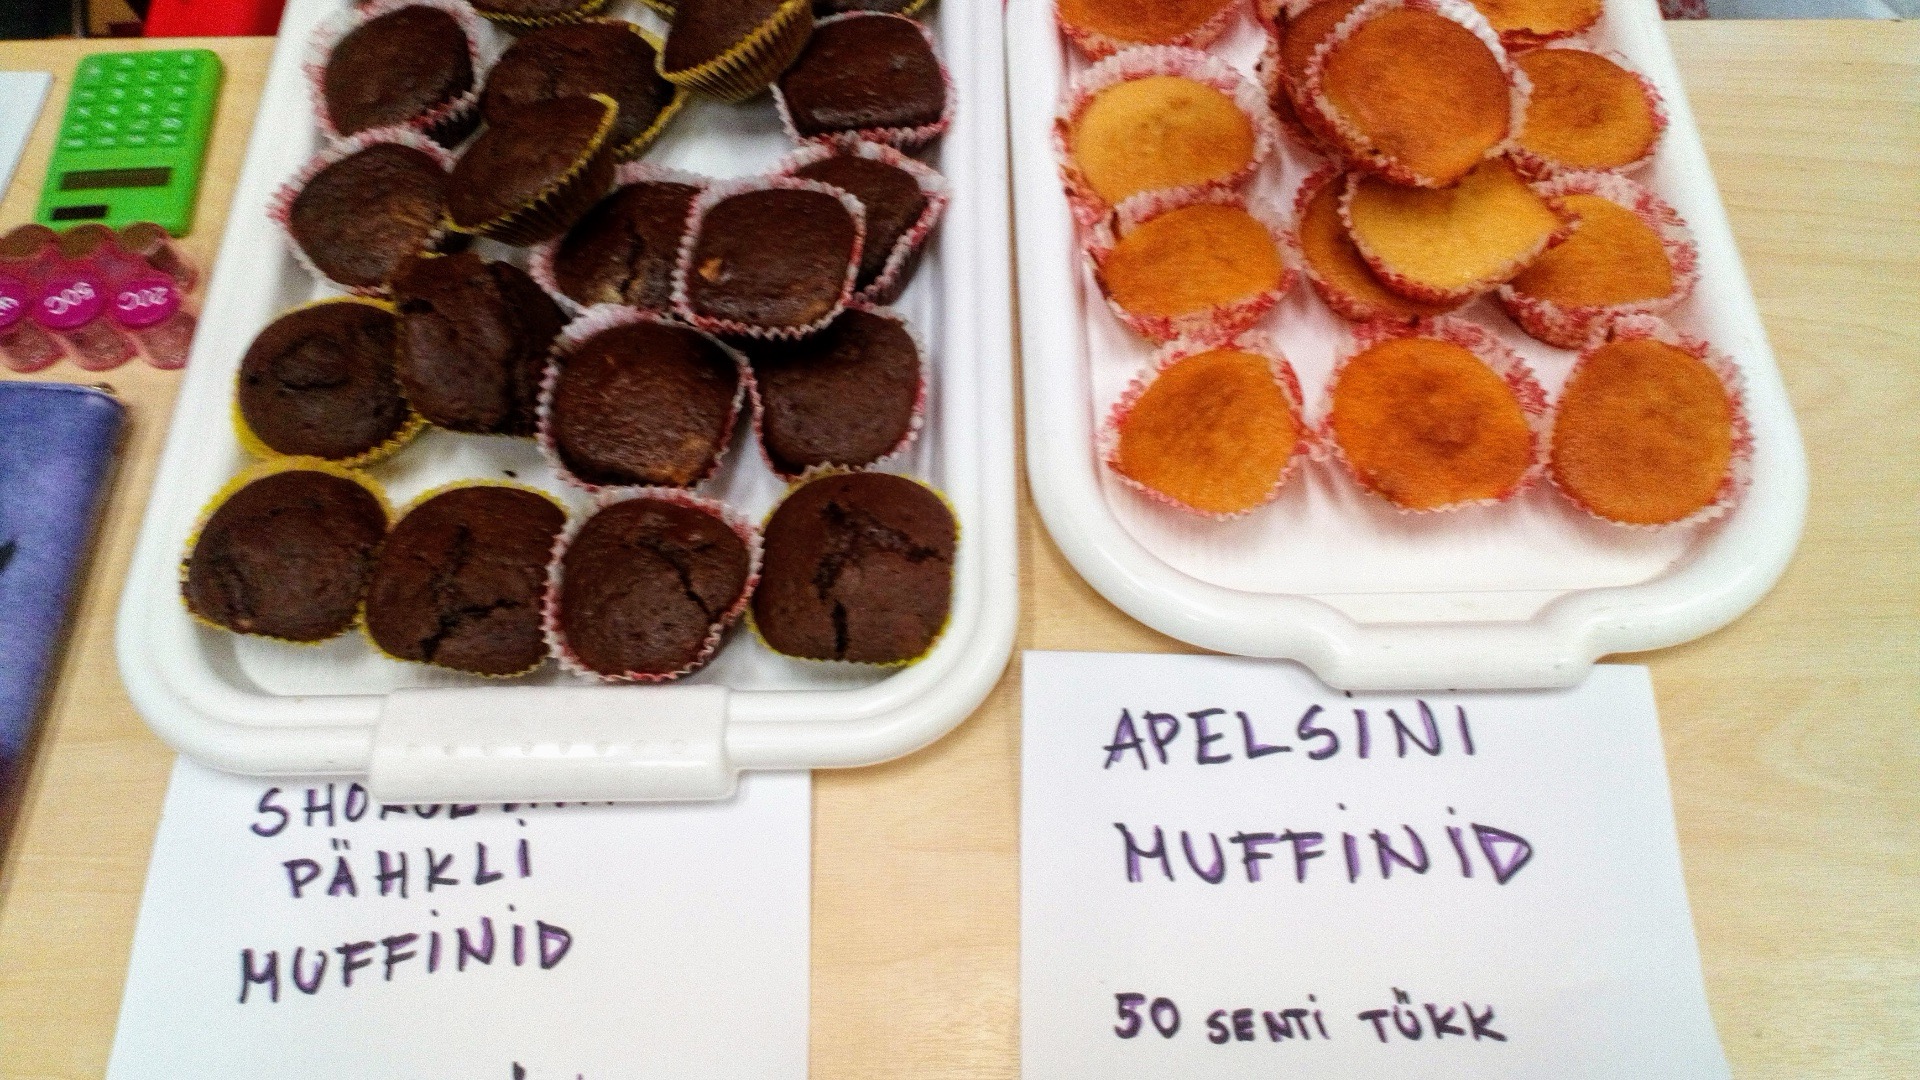 PÄHKLI
MUFFINID
APELSINI
MUFFINID
50 SENTI TÜKK
50C
20C